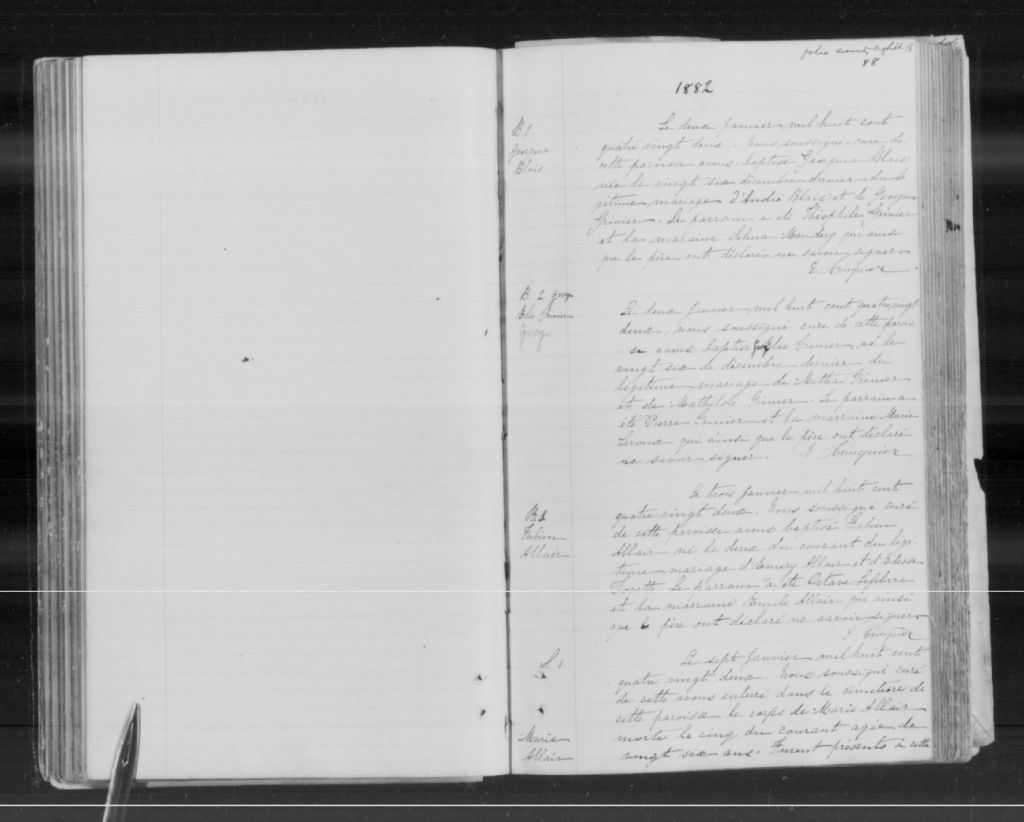 folio seventy eighth
88
1882
B 1
Georgina
Blais
Le deux Janvier mil huit cent
quatre vingt deux. Nous soussigné curé de
cette paroisse avons baptisé Georgina Blais
née le vingt six décembre dernier du lé
gitime mariage d'André Blais et de Georgina
Grenier. Le parrain a été Théophile Grenier
et la marraine Maudery qui ainsi
que le père ont déclaré ne savoir signer
B. 2
Elie Grenier
Le deux Janvier mil huit cent quatre vingt
deux, nous soussigné curé de cette parois
se avons baptisé Elie Grenier né le
vingt six de décembre dernier du
légitime mariage de Grenier
et de Mathylde Grenier. Le parrain a
été Pierre Grenier et la marraine Marie
Leroux qui ainsi que le père ont déclaré
ne savoir signer.
B 3
Fabien
Allair
Le trois Janvier mil huit cent
quatre vingt deux. Nous soussigné curé
de cette paroisse avons baptisé Fabien
Allair né le deux du courant du légi
time mariage d'Emery Allair et
Le parrain a été Octave Lefebvre
et la marraine Emilie Allair qui ainsi
que le père ont déclaré ne savoir signer
S. 1
Marie
Allair
Le sept Janvier mil huit cent
quatre vingt deux. Nous soussigné curé
de cette avons enterré dans le cimetière de
cette paroisse le corps de Marie Allair
morte le cinq du courant agée de
vingt six ans. Furent présents à cette